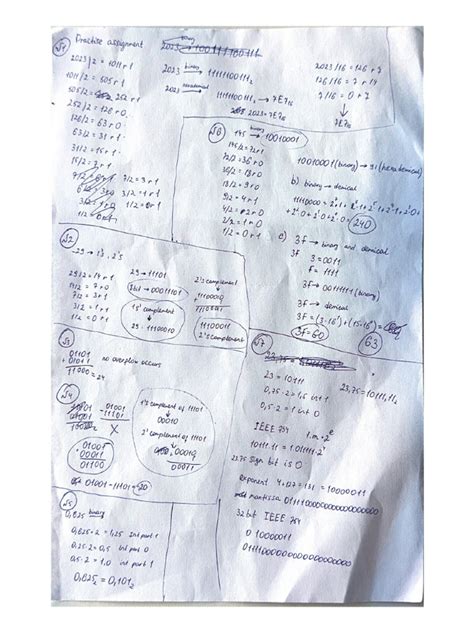 №1 Practice assignment
2023/2 = 1011 r 1
1011/2 = 505 r 1
505/2 = 252 r 1
252/2 = 126 r 0
126/2 = 63 r 0
63/2 = 31 r 1
31/2 = 15 r 1
15/2 = 7 r 1
7/2 = 3 r 1
3/2 = 1 r 1
1/2 = 0 r 1
binary
2023 → 11111100111₂
2023 → 11111100111₂ → 7E7₁₆
2023 = 7E7₁₆
2023/16 = 126 r 7
126/16 = 7 r 14
7/16 = 0 r 7
↓
7E7₁₆
№2
29 → 1's, 2's
29/2 = 14 r 1
14/2 = 7 r 0
7/2 = 3 r 1
3/2 = 1 r 1
1/2 = 0 r 1
29 → 11101
8bit → 00011101
1s' complement
29 = 11100010
2's complement
11100010
1
11100011
2's complement
№3
01101
+01011
11000 = 24
no overflow occurs
№4
01001
-11101
X
01001
00011
01100
1's complement of 11101
00010
2' complement of 11101
00010
1
00011
01001 - 11101 = -20
№5
0,625 binary
0,625·2 = 1,25 int part 1
0,25·2 = 0,5 int part 0
0,5·2 = 1.0 int part 1
0,625₂ = 0,101₂
№6
145 binary → 10010001
145/2 = 72 r 1
72/2 = 36 r 0
36/2 = 18 r 0
18/2 = 9 r 0
9/2 = 4 r 1
4/2 = 2 r 0
2/2 = 1 r 0
1/2 = 0 r 1
10010001 (binary) → 91 (hexadecimal)
b) binary → decimal
11110000 = 2⁷·1+2⁶·1+2⁵·1+2⁴·1+2³·0+
+2²·0+2¹·0+2⁰·0 = 240
c) 3f → binary and decimal
3f 3 = 0011
f = 1111
3f → 00111111 (binary)
3f → decimal
3f = (3·16¹)+(15·16⁰) =
3f = 60
63
№7
23 = 10111
0,75·2 = 1,5 int 1
0,5·2 = 1 int 0
23,75 = 10111,11₂
IEEE 754 1.m·2ᵉ
10111.11 = 1.011111·2⁴
23.75 sign bit is 0
exponent 4+127 = 131 = 10000011
mantissa
32 bit IEEE 754
0 10000011